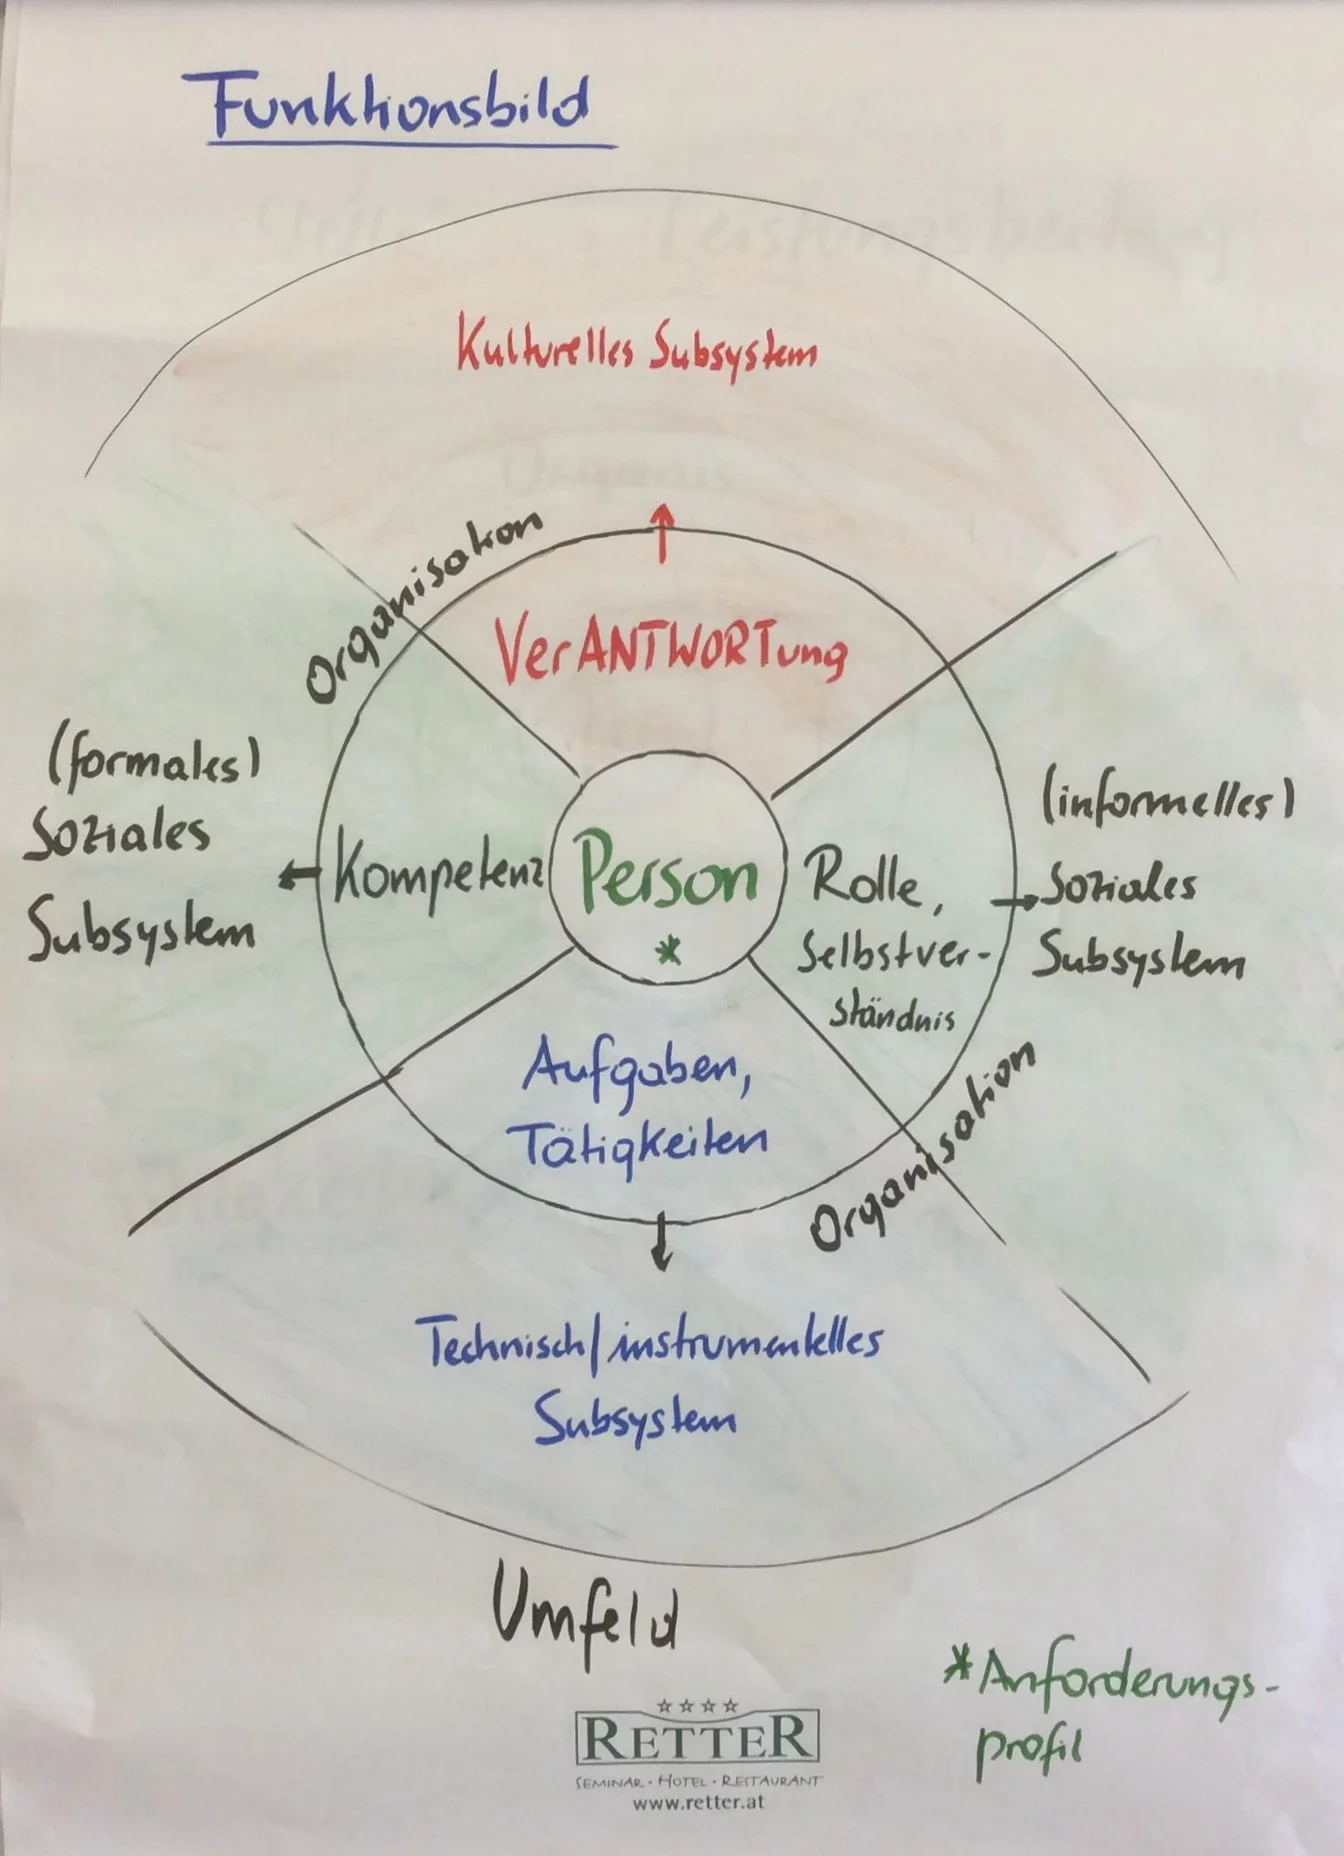 Funktionsbild
Kulturelles Subsystem
Organisation
VerANTWORTung
(formales)
Soziales
Subsystem
Kompetenz
Person
*
Rolle,
Selbstver-
ständnis
(informelles)
Soziales
Subsystem
Aufgaben,
Tätigkeiten
Organisation
Technisch/instrumentelles
Subsystem
Umfeld
*Anforderungs-
profil
RETTER
SEMINAR · HOTEL · RESTAURANT
www.retter.at